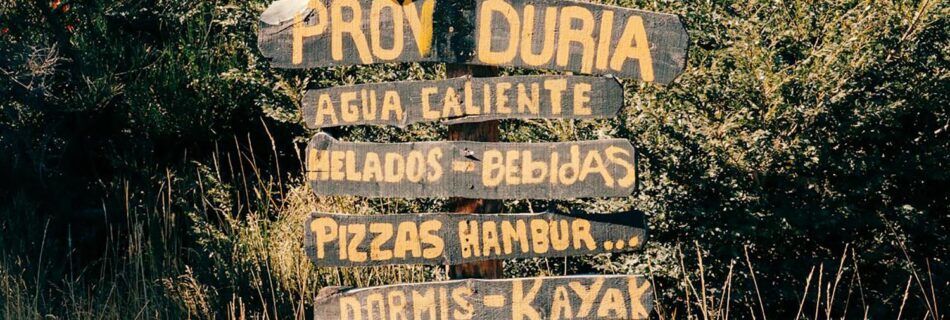 PROV DURIA
AGUA CALIENTE
HELADOS - BEBIDAS
PIZZAS HAMBUR...
DORMIS - KAYAK